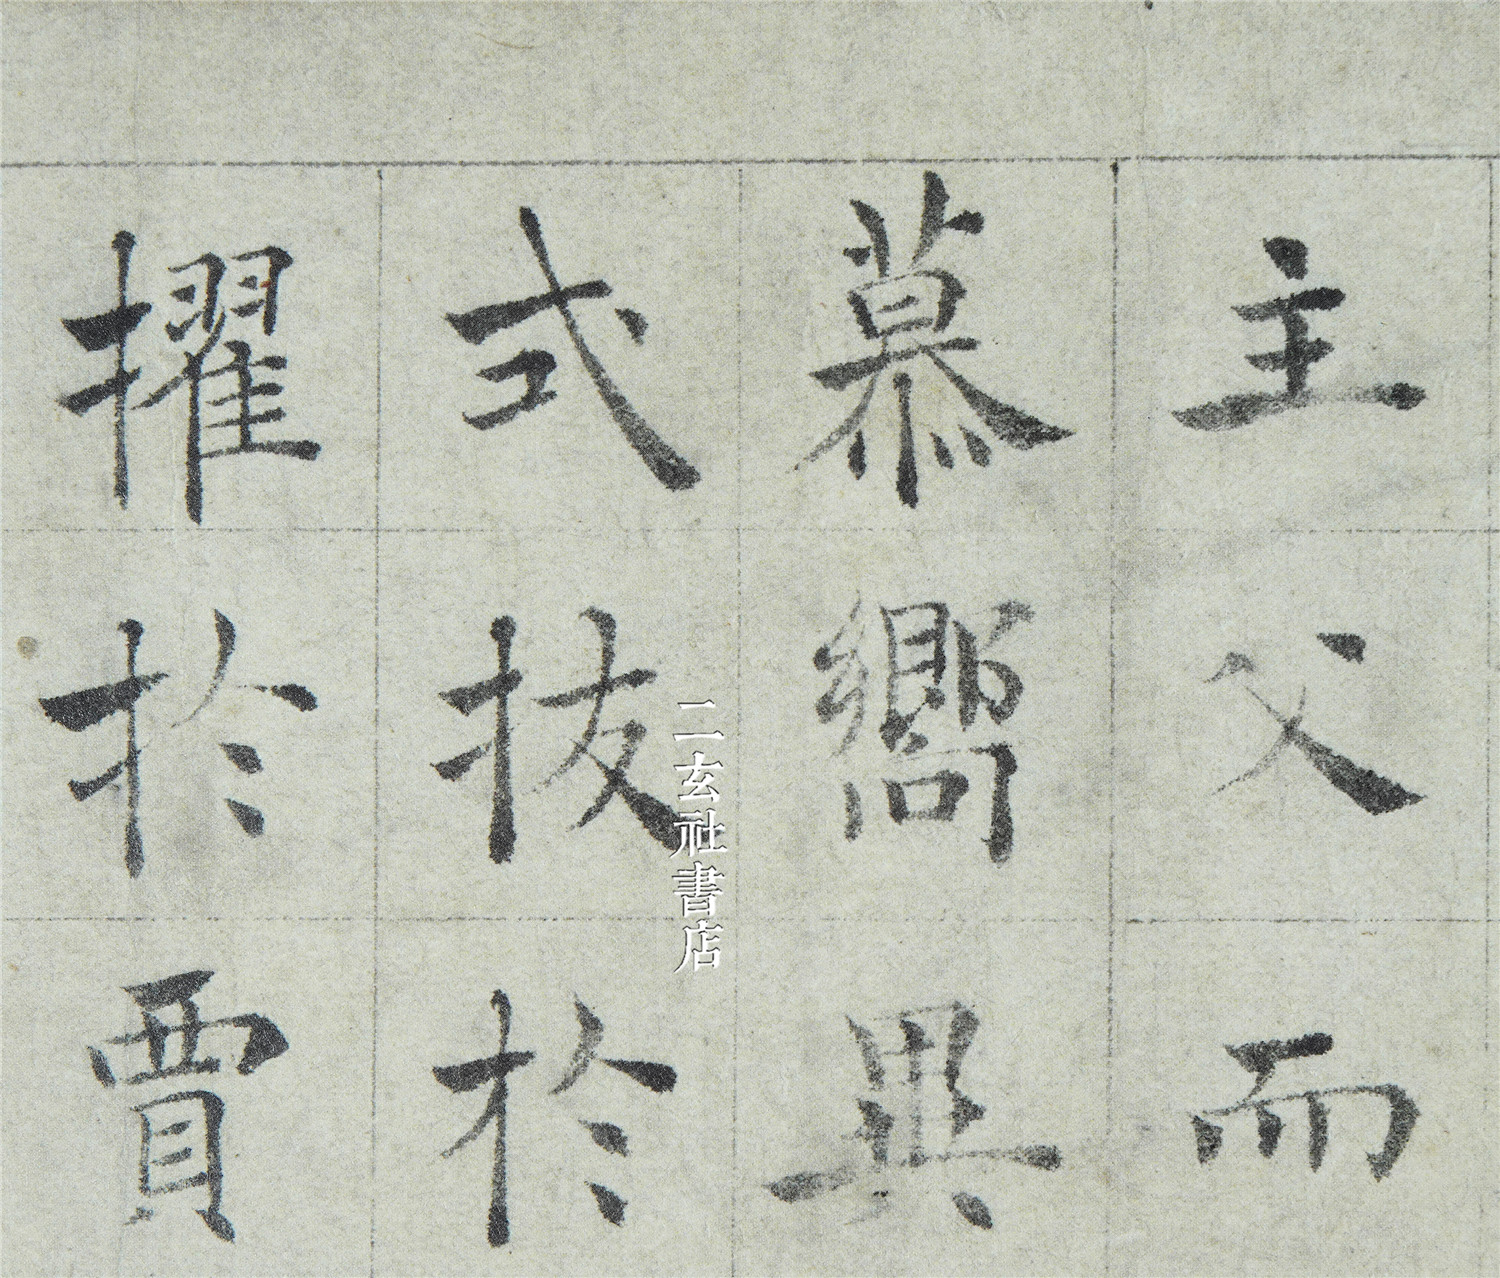 主父而
慕嚮異
式抜於
擢於賈
二玄社書店